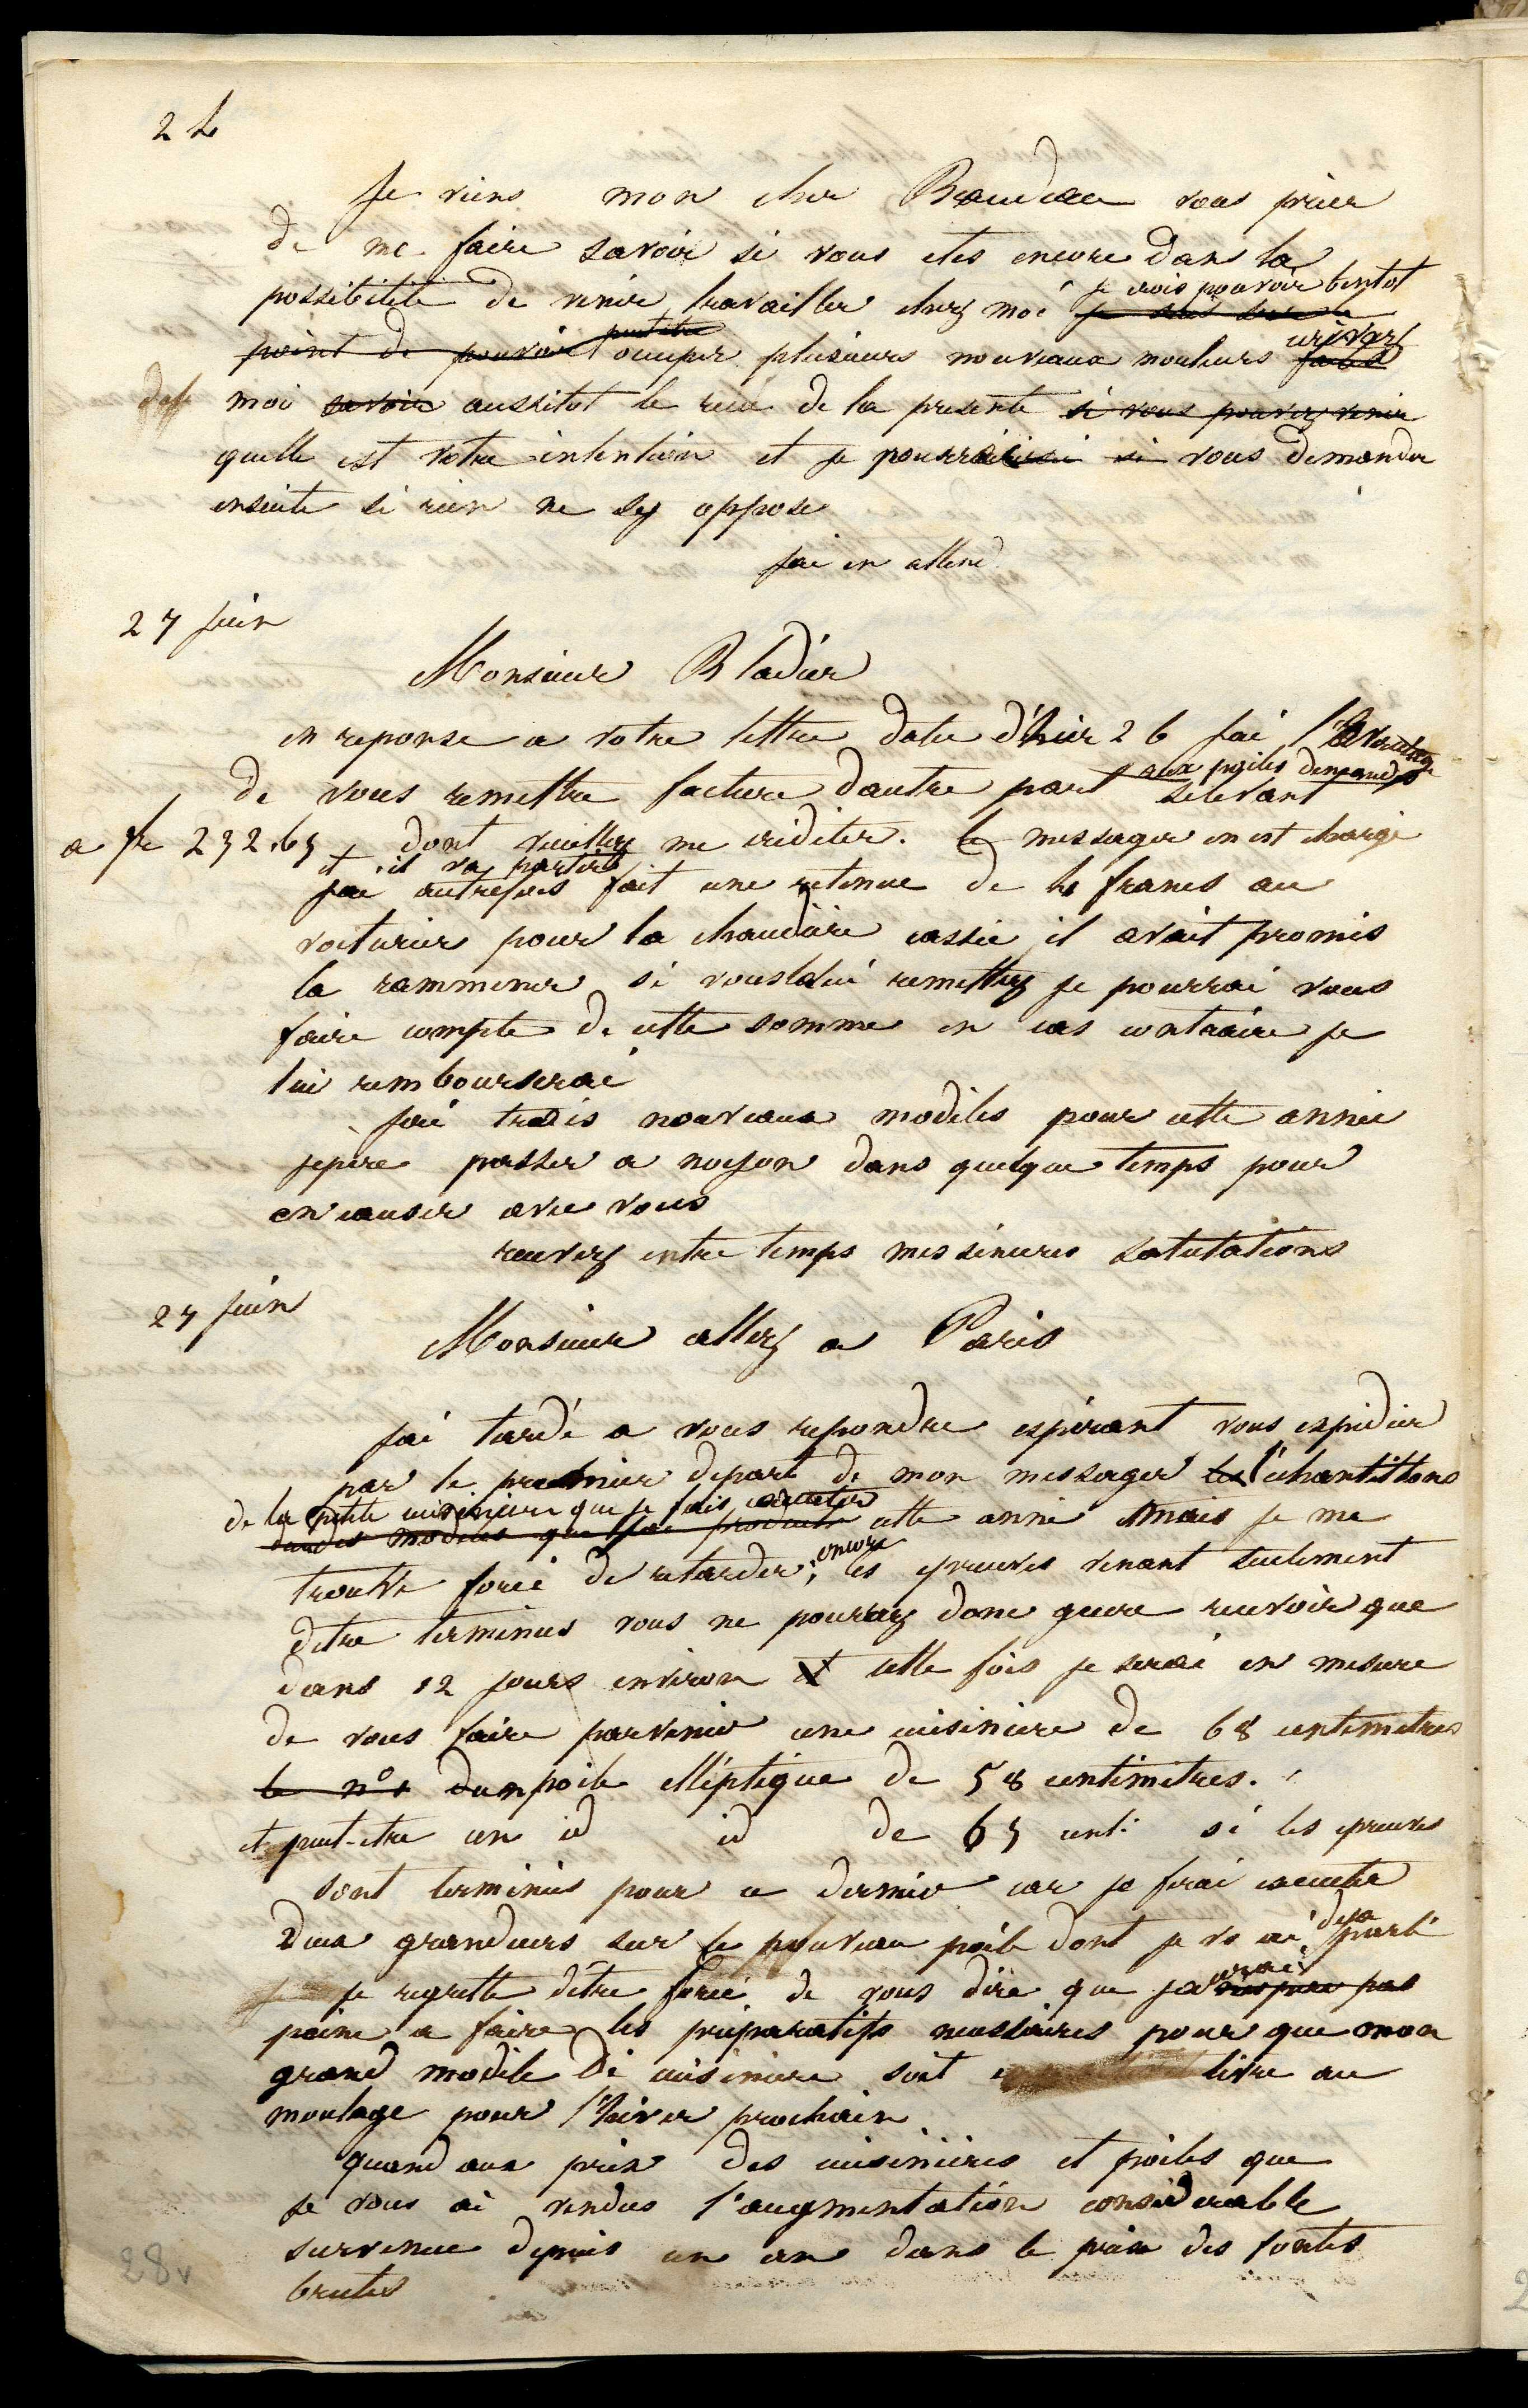 24
Je viens mon cher Beaudoux vous prier
de me faire savoir si vous etes encore dans la
possibilité de venir travailler chez moi je crois pouvoir bentot
je suis sur le
point de pouvoir peut etre occuper plusieurs nouveaux mouleurs ecrivez
moi savoir aussitot le recu de la presente si vous pouvez venir
quelle est votre intention et je pourrai vous demander
ensuite si rien ne sy oppose
jai en attend
27 juin
Monsieur Bladier
en reponse a votre lettre datée d'hier 26 jai l'avantage
de vous remettre facture dautre part aux poiles demandés selevant
a fr 232.65 dont veuillez me créditer. le messager en est chargé
et il va partir
jai autrefois fait une retenue de 4 francs au
voiturier pour la chaudière cassée il avait promis
la rammener si vous la lui remettez je pourrai vous
faire compte de cette somme en cas contraire je
lui rembourserai
jai trois nouveaux modèles pour cette année
jepere passer a noyon dans quelque temps pour
en causer avec vous
recevez entre temps mes sinceres salutations
27 juin
Monsieur allez a Paris
jai tardé a vous repondre espérant vous expédier
par le premier depart de mon messager les l'échantillons
de la petite cuisinière que je fais executer
des modeles que jai produire cette année mais je me
trouve forcé de retarder encore, les epreuves venant seulement
detre terminés vous ne pourrez donc guere recevoir que
dans 12 jours environ et cette fois je serai en mesure
de vous faire parvenir une cuisiniere de 68 centimetres
le n° 1 dun poile elléptique de 58 centimètres.
et peut-etre un id id de 65 cent: si les epreuves
sont terminés pour ce dernier car je ferai executer
deux grandeurs sur le nouveau poële dont je vs ai deja parlé
je regrette d'être forcé de vous dire que jaurai
peine a faire les préparatifs necessaires pour que mon
grand modèle de cuisiniere soit livre au
moulage pour l'hiver prochain
quand aux prix des cuisinières et poëles que
je vous ai vendus l'augmentation considerable
survenue depuis un an dans le prix des fontes
brutes
28v